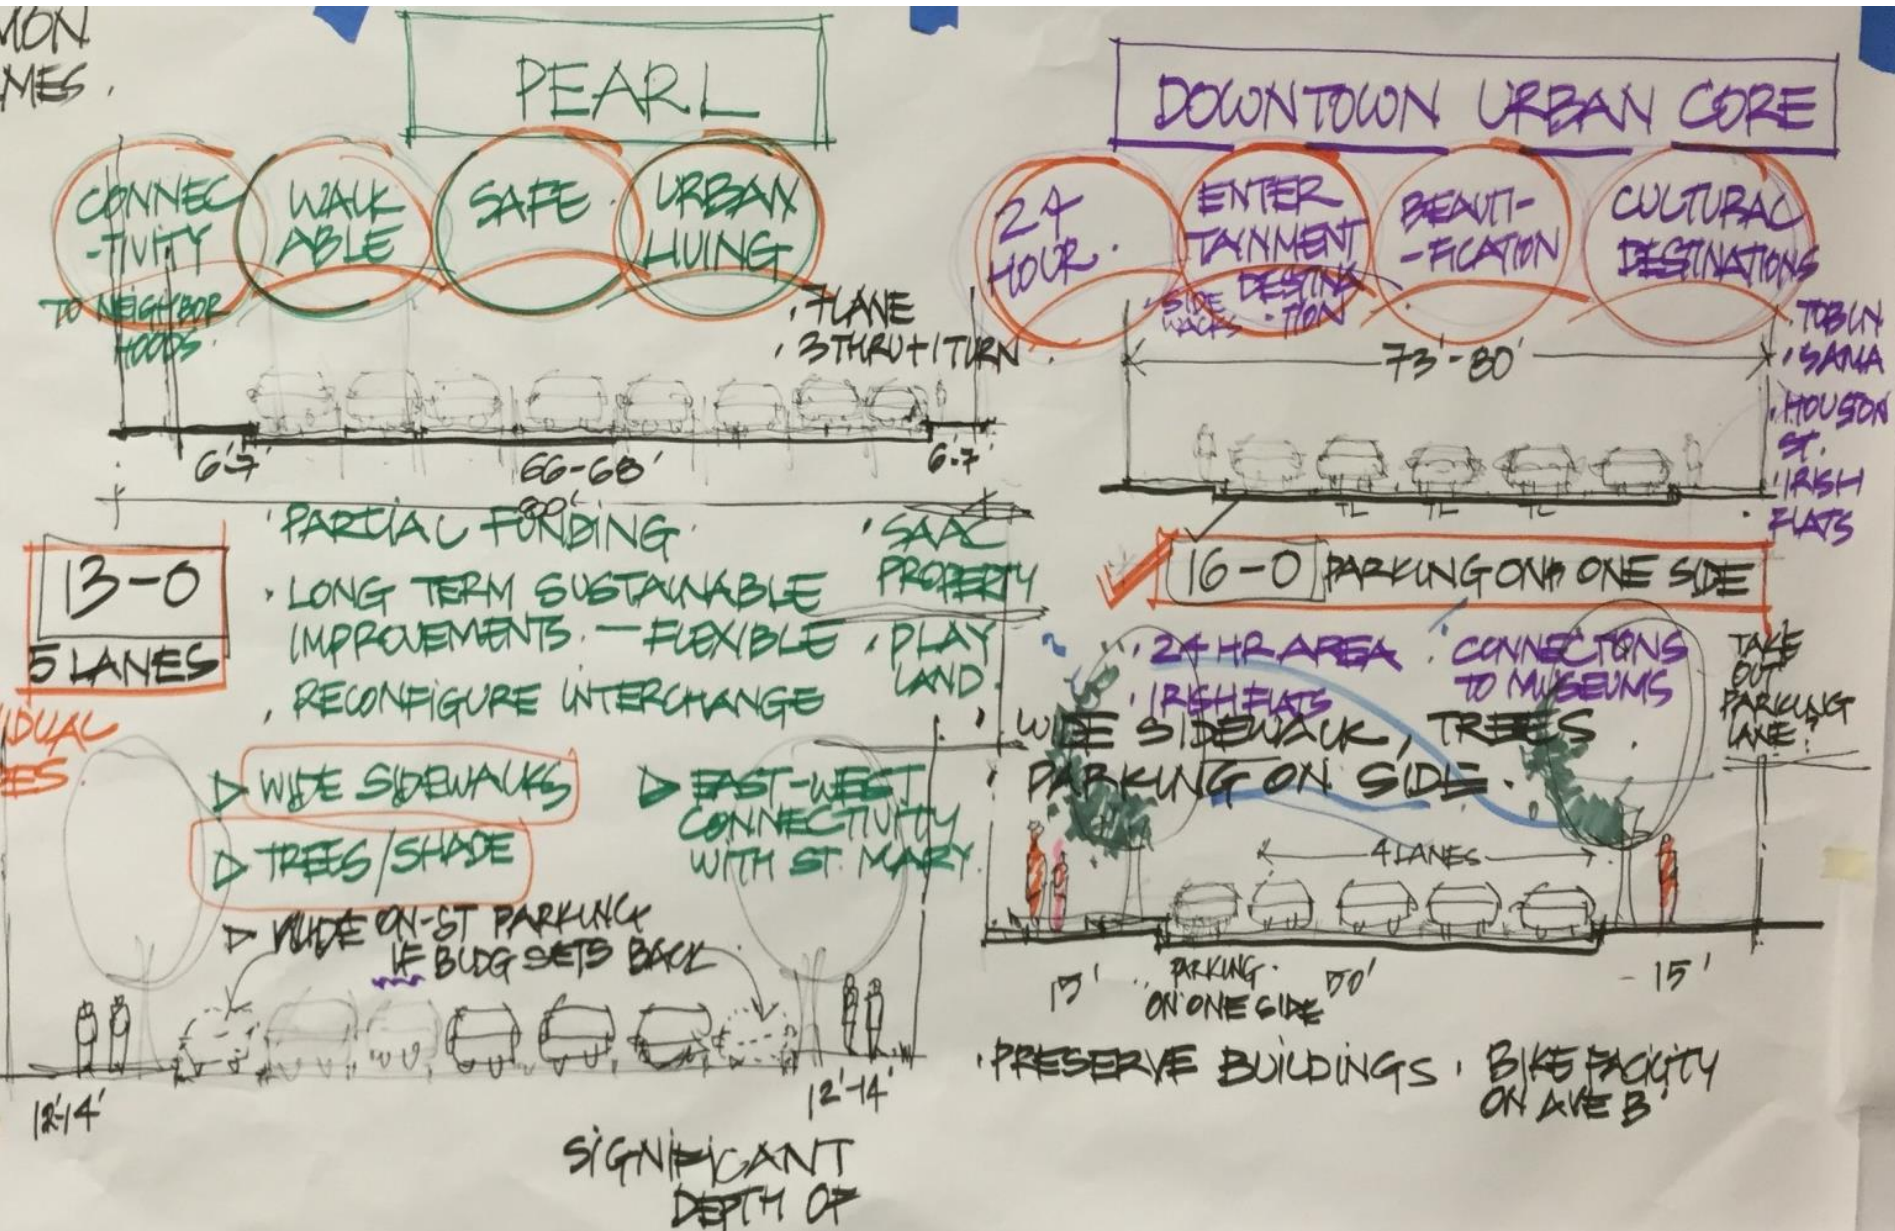 MON
MES.
PEARL
CONNEC
-TIVITY
TO NEIGHBOR
HOODS.
WALK
ABLE
SAFE.
URBAN
LIVING
• 7 LANE
• 3 THRU + 1 TURN
6'-7'
66-68'
6-7'
80'
13-0
5 LANES
• PARTIAL FUNDING.
• LONG TERM SUSTAINABLE
IMPROVEMENTS. — FLEXIBLE
• RECONFIGURE INTERCHANGE
• SAAC
PROPERTY
• PLAY
LAND.
▷ WIDE SIDEWALKS
▷ TREES/SHADE
▷ EAST-WEST
CONNECTIVITY
WITH ST. MARY.
ON-ST PARKING
IF BLDG SETS BACK
12'-14'
12'-14'
SIGNIFICANT
DEPTH OF
DOWNTOWN URBAN CORE
24
HOUR.
ENTER
TAINMENT
DESTINA
-TION
SIDE
WALKS
BEAUTI-
-FICATION
CULTURAL
DESTINATIONS
• TOBIN
• SAMA
• HOUSTON
ST.
• IRISH
FLATS
73'-80'
16-0 PARKING ON ONE SIDE
• 24 HR AREA
• IRISH FLATS
• CONNECTIONS
TO MUSEUMS
TAKE
OUT
PARKING
LANE?
• WIDE SIDEWALK, TREES
• PARKING ON SIDE.
4 LANES
15'
PARKING
ON ONE SIDE
50'
15'
• PRESERVE BUILDINGS
• BIKE FACILITY
ON AVE B